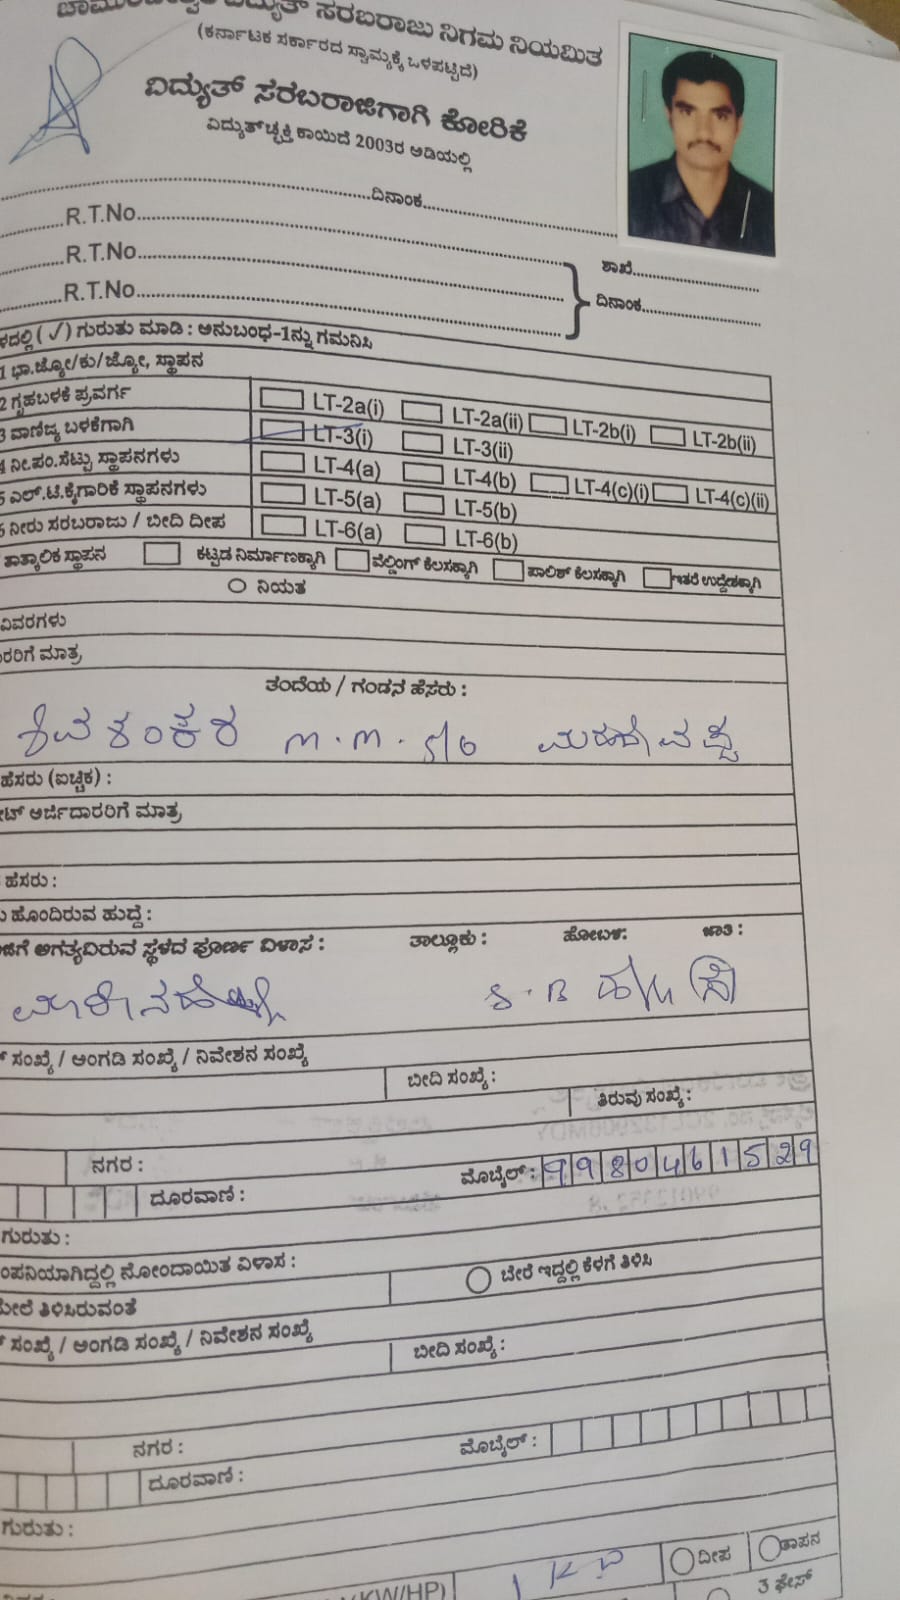 ವಿದ್ಯುತ್ ಸರಬರಾಜು ನಿಗಮ ನಿಯಮಿತ
(ಕರ್ನಾಟಕ ಸರ್ಕಾರದ ಸ್ವಾಮ್ಯಕ್ಕೆ ಒಳಪಟ್ಟಿದೆ)
ವಿದ್ಯುತ್ ಸರಬರಾಜಿಗಾಗಿ ಕೋರಿಕೆ
ವಿದ್ಯುತ್‌ಚ್ಛಕ್ತಿ ಕಾಯಿದೆ 2003ರ ಅಡಿಯಲ್ಲಿ
ದಿನಾಂಕ
R.T.No
R.T.No
ಶಾಖೆ
R.T.No
ದಿನಾಂಕ
(✓) ಗುರುತು ಮಾಡಿ : ಅನುಬಂಧ-1ನ್ನು ಗಮನಿಸಿ
1 ಭಾ.ಜ್ಯೋ/ಕು/ಜ್ಯೋ, ಸ್ಥಾಪನ
2 ಗೃಹಬಳಕೆ ಪ್ರವರ್ಗ LT-2a(i) LT-2a(ii) LT-2b(i) LT-2b(ii)
3 ವಾಣಿಜ್ಯ ಬಳಕೆಗಾಗಿ LT-3(i) LT-3(ii)
4 ನೀ.ಪಂ.ಸೆಟ್ಟು ಸ್ಥಾಪನಗಳು LT-4(a) LT-4(b) LT-4(c)(i) LT-4(c)(ii)
5 ಎಲ್.ಟಿ.ಕೈಗಾರಿಕೆ ಸ್ಥಾಪನಗಳು LT-5(a) LT-5(b)
ನೀರು ಸರಬರಾಜು / ಬೀದಿ ದೀಪ LT-6(a) LT-6(b)
ತಾತ್ಕಾಲಿಕ ಸ್ಥಾಪನ ಕಟ್ಟಡ ನಿರ್ಮಾಣಕ್ಕಾಗಿ ವೆಲ್ಡಿಂಗ್ ಕೆಲಸಕ್ಕಾಗಿ ಪಾಲಿಶ್ ಕೆಲಸಕ್ಕಾಗಿ ಇತರೆ ಉದ್ದೇಶಕ್ಕಾಗಿ
ನಿಯತ
ವಿವರಗಳು
ಮಾತ್ರ
ತಂದೆಯ / ಗಂಡನ ಹೆಸರು :
ಶಿವಶಂಕರ m.m. s/o
ಹೆಸರು (ಐಚ್ಛಿಕ) :
ಅರ್ಜಿದಾರರಿಗೆ ಮಾತ್ರ
ಹೆಸರು :
ಹೊಂದಿರುವ ಹುದ್ದೆ :
ಅಗತ್ಯವಿರುವ ಸ್ಥಳದ ಪೂರ್ಣ ವಿಳಾಸ : ತಾಲ್ಲೂಕು : ಹೋಬಳಿ: ಜಾತಿ :
ಸಂಖ್ಯೆ / ಅಂಗಡಿ ಸಂಖ್ಯೆ / ನಿವೇಶನ ಸಂಖ್ಯೆ
ಬೀದಿ ಸಂಖ್ಯೆ :
ತಿರುವು ಸಂಖ್ಯೆ :
ನಗರ :
ದೂರವಾಣಿ : ಮೊಬೈಲ್ : 9980461529
ಗುರುತು :
ನೋಂದಾಯಿತ ವಿಳಾಸ :
ತಿಳಿಸಿರುವಂತೆ ಬೇರೆ ಇದ್ದಲ್ಲಿ ಕೆಳಗೆ ತಿಳಿಸಿ
ಸಂಖ್ಯೆ / ಅಂಗಡಿ ಸಂಖ್ಯೆ / ನಿವೇಶನ ಸಂಖ್ಯೆ
ಬೀದಿ ಸಂಖ್ಯೆ :
ನಗರ :
ದೂರವಾಣಿ : ಮೊಬೈಲ್ :
ಗುರುತು :
(KW/HP) ದೀಪ ತಾಪನ
3 ಫೇಸ್